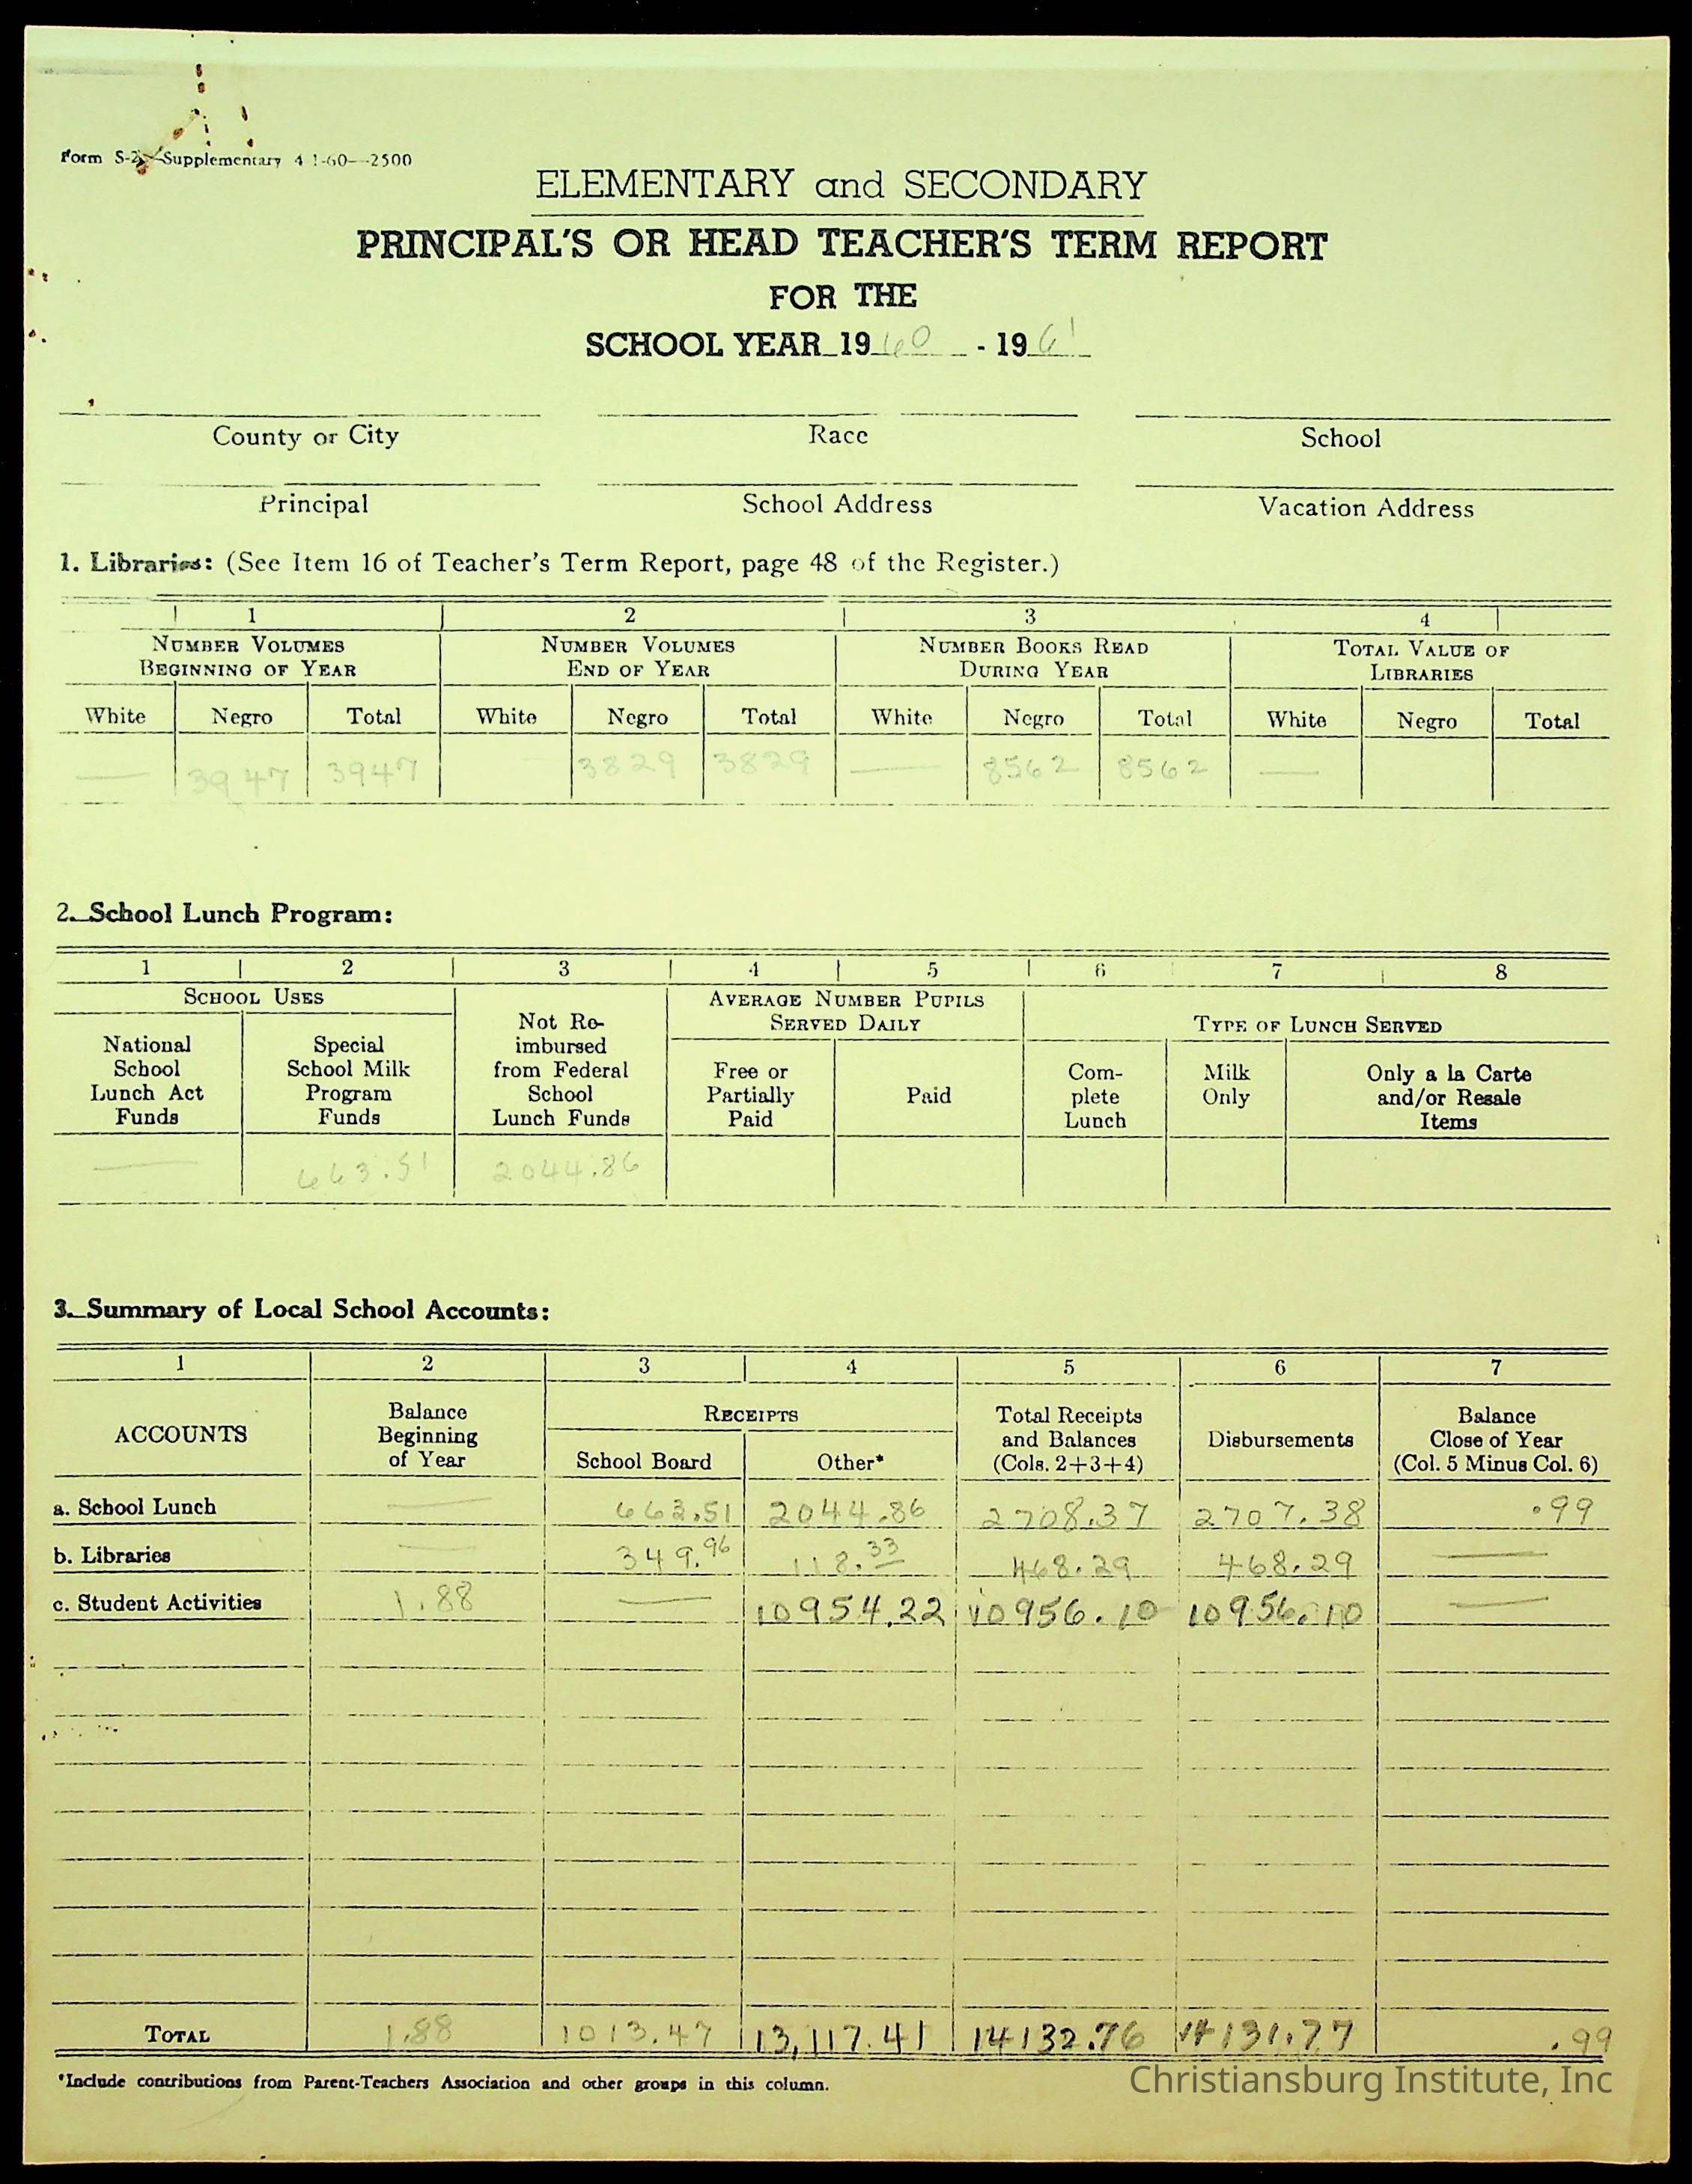 Form S-2—Supplementary 4 1-60—2500
ELEMENTARY and SECONDARY
PRINCIPAL'S OR HEAD TEACHER'S TERM REPORT
FOR THE
SCHOOL YEAR 1960 - 1961
County or City Race School
Principal School Address Vacation Address
1. Libraries: (See Item 16 of Teacher's Term Report, page 48 of the Register.)
1 2 3 4
NUMBER VOLUMES NUMBER VOLUMES NUMBER BOOKS READ TOTAL VALUE OF
BEGINNING OF YEAR END OF YEAR DURING YEAR LIBRARIES
White Negro Total White Negro Total White Negro Total White Negro Total
— 3947 3947 3829 3829 — 8562 8562 —
2. School Lunch Program:
1 2 3 4 5 6 7 8
SCHOOL USES AVERAGE NUMBER PUPILS
Not Re- SERVED DAILY TYPE OF LUNCH SERVED
National Special imbursed
School School Milk from Federal Free or Com- Milk Only a la Carte
Lunch Act Program School Partially Paid plete Only and/or Resale
Funds Funds Lunch Funds Paid Lunch Items
— 663.51 2044.86
3. Summary of Local School Accounts:
1 2 3 4 5 6 7
Balance RECEIPTS Total Receipts Balance
ACCOUNTS Beginning and Balances Disbursements Close of Year
of Year School Board Other* (Cols. 2+3+4) (Col. 5 Minus Col. 6)
a. School Lunch — 663.51 2044.86 2708.37 2707.38 .99
b. Libraries — 349.96 118.33 468.29 468.29 —
c. Student Activities 1.88 — 10954.22 10956.10 10956.10 —
TOTAL 1.88 1013.47 13,117.41 14132.76 14131.77 .99
*Include contributions from Parent-Teachers Association and other groups in this column.
Christiansburg Institute, Inc